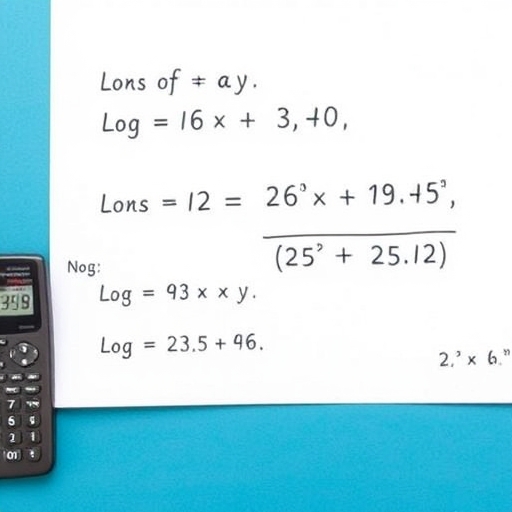 Lons of ≠ ay.
Log = 16 x + 3,40,
Lons = 12 = 26³x + 19.45³,
(25³ + 25.12)
Nog:
Log = 93 x x y.
Log = 23.5 + 96.
2.³ x 6.”
399
7
6